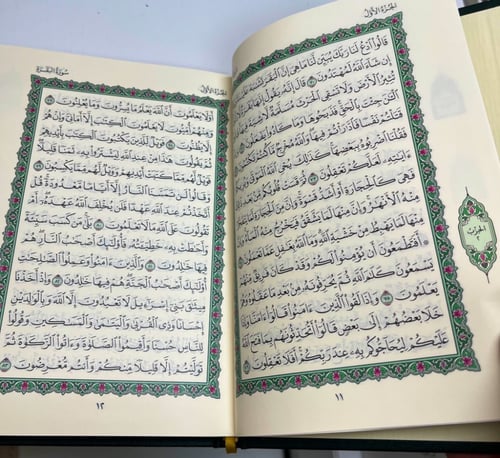 الجزء الأول
قَالُوا۟ ٱدْعُ لَنَا رَبَّكَ يُبَيِّن لَّنَا مَا هِىَ إِنَّ ٱلْبَقَرَ تَشَٰبَهَ عَلَيْنَا وَإِنَّآ
إِن شَآءَ ٱللَّهُ لَمُهْتَدُونَ ٧٠ قَالَ إِنَّهُۥ يَقُولُ إِنَّهَا بَقَرَةٌ لَّا ذَلُولٌ
تُثِيرُ ٱلْأَرْضَ وَلَا تَسْقِى ٱلْحَرْثَ مُسَلَّمَةٌ لَّا شِيَةَ فِيهَا قَالُوا۟
ٱلْـَٰٔنَ جِئْتَ بِٱلْحَقِّ فَذَبَحُوهَا وَمَا كَادُوا۟ يَفْعَلُونَ ٧١ وَإِذْ
قَتَلْتُمْ نَفْسًا فَٱدَّٰرَْٰٔتُمْ فِيهَا وَٱللَّهُ مُخْرِجٌ مَّا كُنتُمْ تَكْتُمُونَ ٧٢
فَقُلْنَا ٱضْرِبُوهُ بِبَعْضِهَا كَذَٰلِكَ يُحْىِ ٱللَّهُ ٱلْمَوْتَىٰ وَيُرِيكُمْ
ءَايَٰتِهِۦ لَعَلَّكُمْ تَعْقِلُونَ ٧٣ ثُمَّ قَسَتْ قُلُوبُكُم مِّنۢ بَعْدِ ذَٰلِكَ
فَهِىَ كَٱلْحِجَارَةِ أَوْ أَشَدُّ قَسْوَةً وَإِنَّ مِنَ ٱلْحِجَارَةِ لَمَا يَتَفَجَّرُ
مِنْهُ ٱلْأَنْهَٰرُ وَإِنَّ مِنْهَا لَمَا يَشَّقَّقُ فَيَخْرُجُ مِنْهُ ٱلْمَآءُ وَإِنَّ
مِنْهَا لَمَا يَهْبِطُ مِنْ خَشْيَةِ ٱللَّهِ وَمَا ٱللَّهُ بِغَٰفِلٍ عَمَّا تَعْمَلُونَ ٧٤
۞ أَفَتَطْمَعُونَ أَن يُؤْمِنُوا۟ لَكُمْ وَقَدْ كَانَ فَرِيقٌ مِّنْهُمْ
يَسْمَعُونَ كَلَٰمَ ٱللَّهِ ثُمَّ يُحَرِّفُونَهُۥ مِنۢ بَعْدِ مَا عَقَلُوهُ وَهُمْ
يَعْلَمُونَ ٧٥ وَإِذَا لَقُوا۟ ٱلَّذِينَ ءَامَنُوا۟ قَالُوٓا۟ ءَامَنَّا وَإِذَا
خَلَا بَعْضُهُمْ إِلَىٰ بَعْضٍ قَالُوٓا۟ أَتُحَدِّثُونَهُم بِمَا فَتَحَ ٱللَّهُ
عَلَيْكُمْ لِيُحَآجُّوكُم بِهِۦ عِندَ رَبِّكُمْ أَفَلَا تَعْقِلُونَ ٧٦
١١
الحزب
سورة البقرة
الجزء الأول
أَوَلَا يَعْلَمُونَ أَنَّ ٱللَّهَ يَعْلَمُ مَا يُسِرُّونَ وَمَا يُعْلِنُونَ ٧٧
وَمِنْهُمْ أُمِّيُّونَ لَا يَعْلَمُونَ ٱلْكِتَٰبَ إِلَّآ أَمَانِىَّ وَإِنْ هُمْ
إِلَّا يَظُنُّونَ ٧٨ فَوَيْلٌ لِّلَّذِينَ يَكْتُبُونَ ٱلْكِتَٰبَ بِأَيْدِيهِمْ
ثُمَّ يَقُولُونَ هَٰذَا مِنْ عِندِ ٱللَّهِ لِيَشْتَرُوا۟ بِهِۦ ثَمَنًا قَلِيلًا
فَوَيْلٌ لَّهُم مِّمَّا كَتَبَتْ أَيْدِيهِمْ وَوَيْلٌ لَّهُم مِّمَّا يَكْسِبُونَ ٧٩
وَقَالُوا۟ لَن تَمَسَّنَا ٱلنَّارُ إِلَّآ أَيَّامًا مَّعْدُودَةً قُلْ
أَتَّخَذْتُمْ عِندَ ٱللَّهِ عَهْدًا فَلَن يُخْلِفَ ٱللَّهُ عَهْدَهُۥٓ أَمْ
تَقُولُونَ عَلَى ٱللَّهِ مَا لَا تَعْلَمُونَ ٨٠ بَلَىٰ مَن كَسَبَ سَيِّئَةً
وَأَحَٰطَتْ بِهِۦ خَطِيٓـَٔتُهُۥ فَأُو۟لَٰٓئِكَ أَصْحَٰبُ ٱلنَّارِ هُمْ
فِيهَا خَٰلِدُونَ ٨١ وَٱلَّذِينَ ءَامَنُوا۟ وَعَمِلُوا۟ ٱلصَّٰلِحَٰتِ
أُو۟لَٰٓئِكَ أَصْحَٰبُ ٱلْجَنَّةِ هُمْ فِيهَا خَٰلِدُونَ ٨٢ وَإِذْ أَخَذْنَا
مِيثَٰقَ بَنِىٓ إِسْرَٰٓءِيلَ لَا تَعْبُدُونَ إِلَّا ٱللَّهَ وَبِٱلْوَٰلِدَيْنِ
إِحْسَانًا وَذِى ٱلْقُرْبَىٰ وَٱلْيَتَٰمَىٰ وَٱلْمَسَٰكِينِ وَقُولُوا۟
لِلنَّاسِ حُسْنًا وَأَقِيمُوا۟ ٱلصَّلَوٰةَ وَءَاتُوا۟ ٱلزَّكَوٰةَ ثُمَّ
تَوَلَّيْتُمْ إِلَّا قَلِيلًا مِّنكُمْ وَأَنتُم مُّعْرِضُونَ ٨٣
١٢